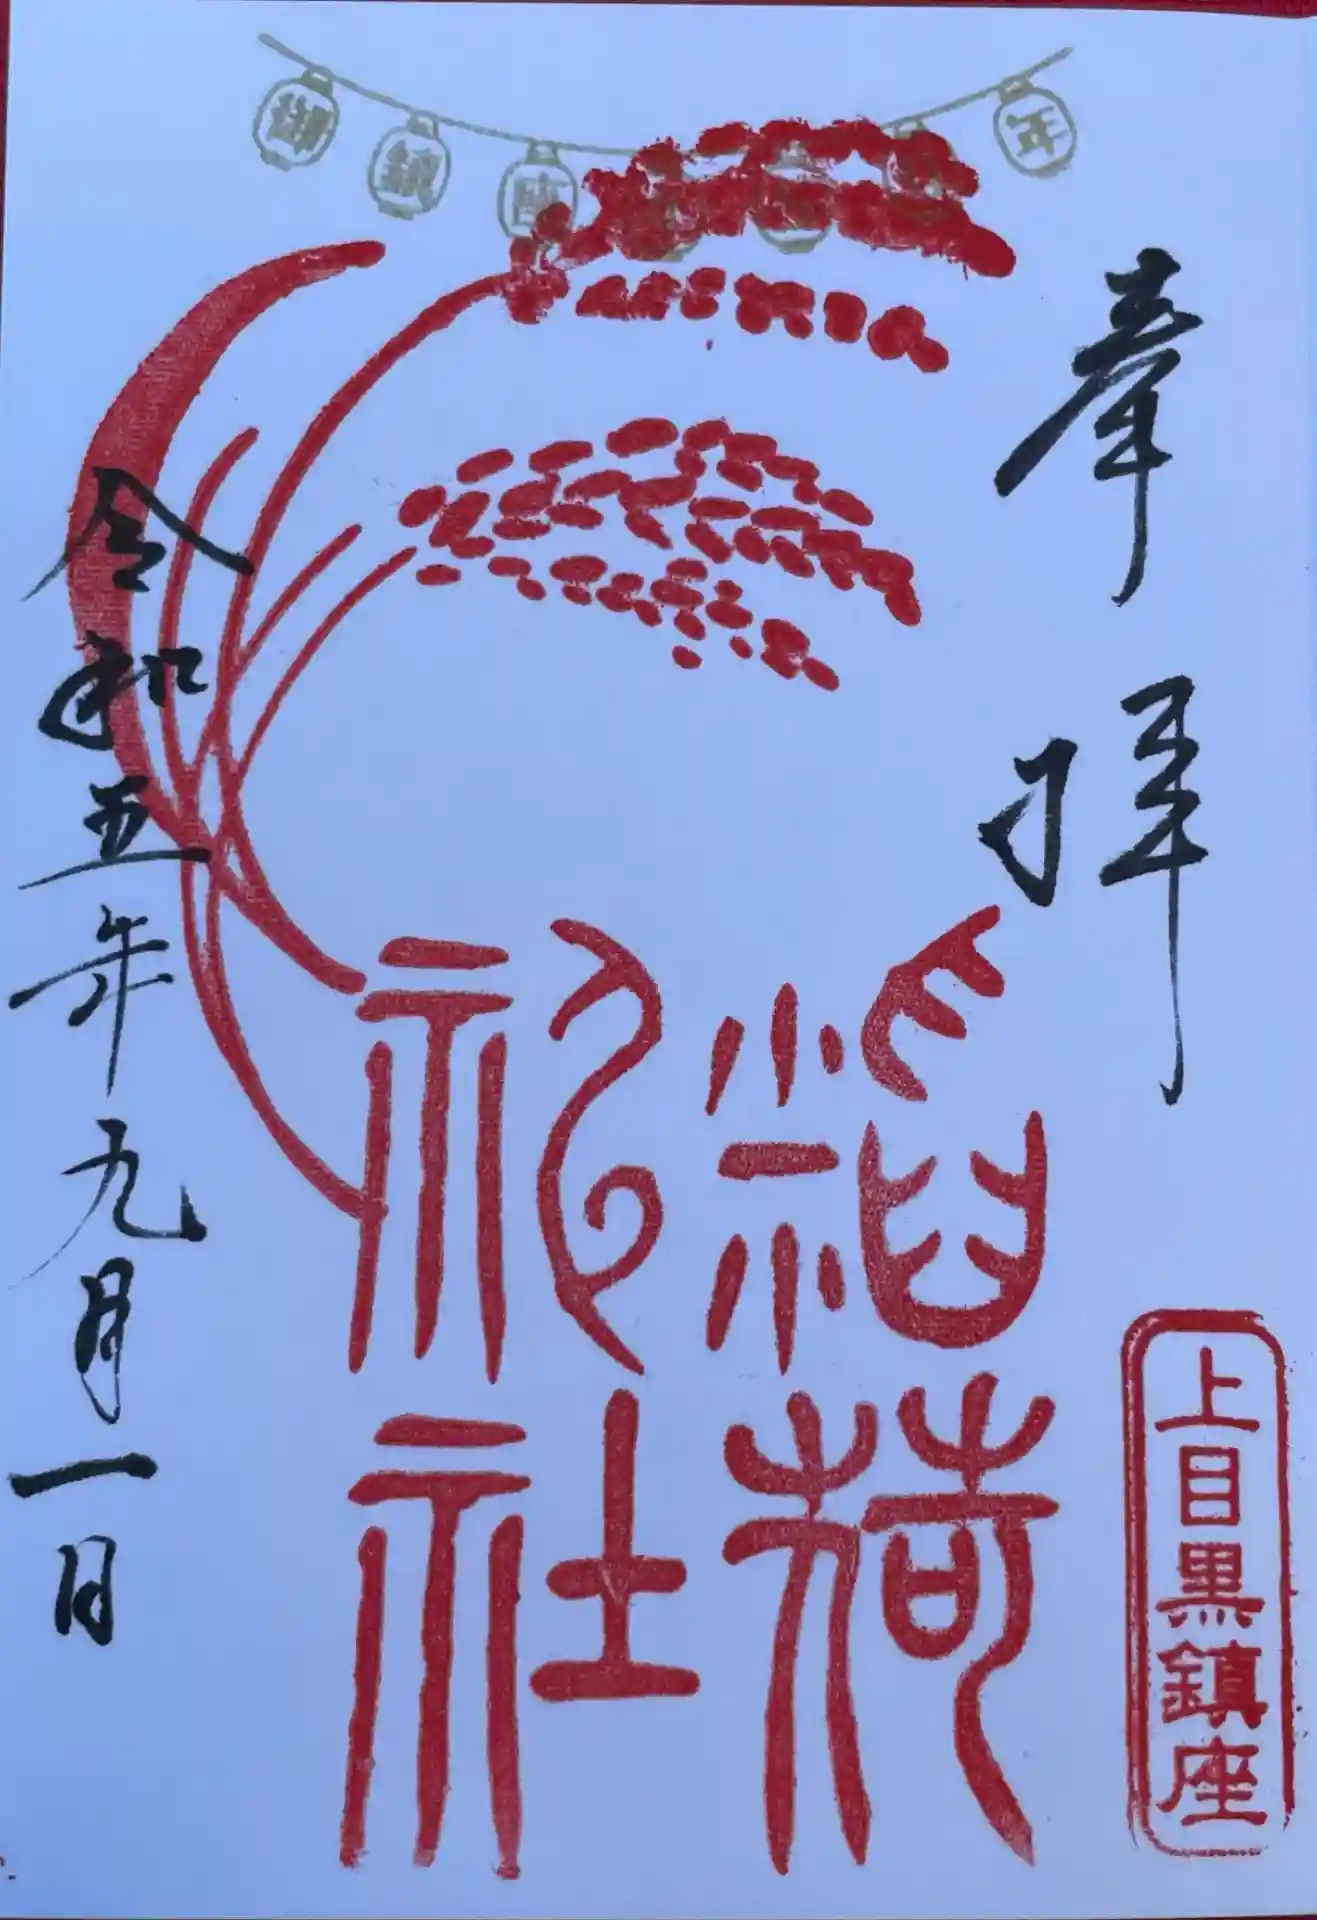 御鎮座
年
奉拝
稲荷
神社
上目黒鎮座
令和五年九月一日